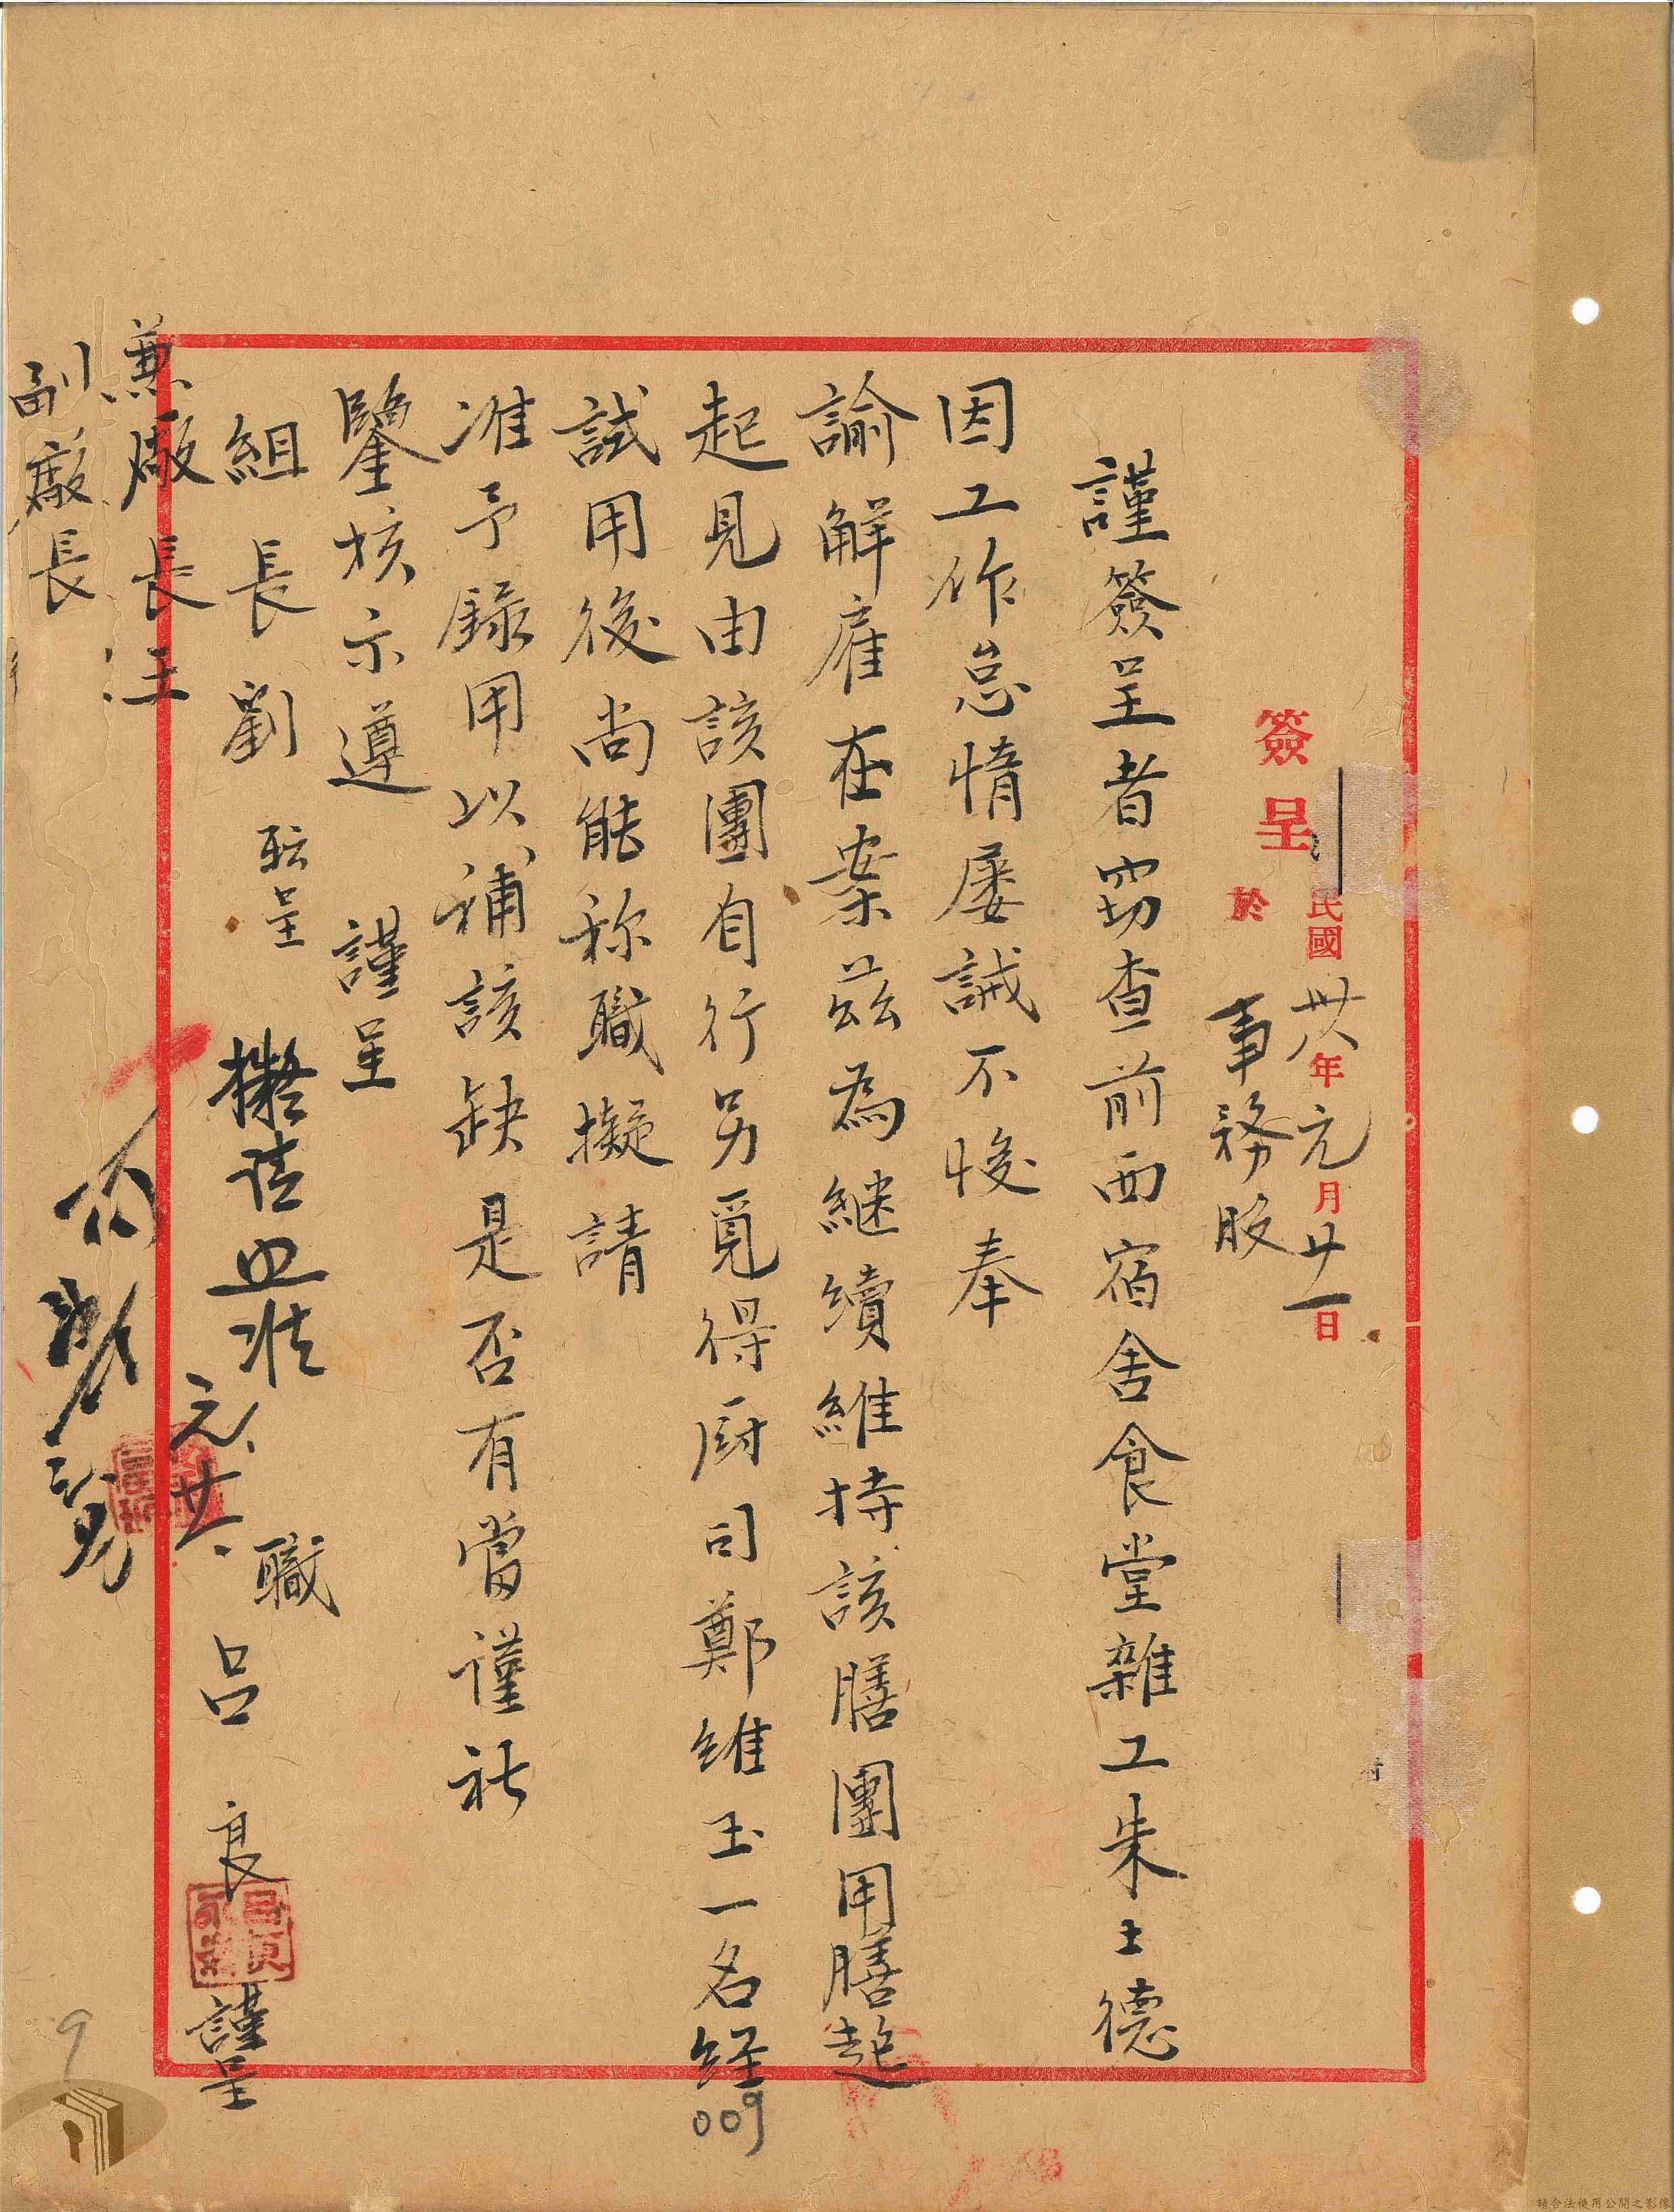 簽呈 民國卅八年元月廿一日
於 事務股
謹簽呈者窃查前西宿舍食堂雜工朱士德
因工作怠惰屡誡不悛奉
諭解雇在案茲為継續維持該膳團用膳起
起見由該團自行另覓得厨司鄭維玉一名経
試用後尚能称職擬請
准予錄用以補該缺是否有當谨社
鑒核示遵 謹呈
組長劉 転呈
兼廠長汪
副廠長
擬請照准
元、廿一、
職 呂良 謹呈
009
9
請合法使用公開之影像